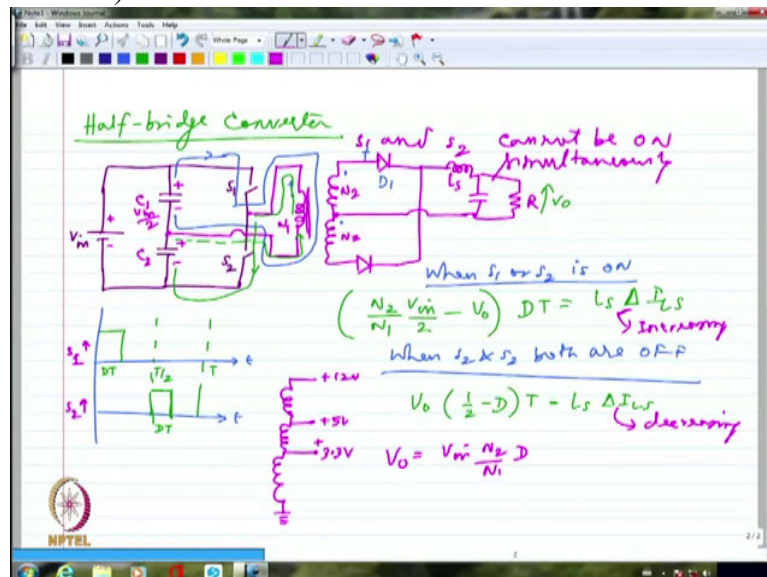 Note1 - Windows Journal
File Edit View Insert Actions Tools Help
Whole Page
B I
Half-bridge Converter
S1 and S2 cannot be ON
simultaneously
C1
Vin/2
C2
Vin
S1
S2
N1
N2
N2
D1
Ls
R
Vo
When S1 or S2 is ON
(N2/N1 Vin/2 - Vo) DT = Ls Δ ILS
Increasing
When S2 & S2 both are OFF
Vo (1/2 - D) T = Ls Δ ILS
decreasing
Vo = Vin N2/N1 D
S1
DT
T/2
T
t
S2
DT
t
+12V
+5V
+3.3V
NPTEL
2/2
2